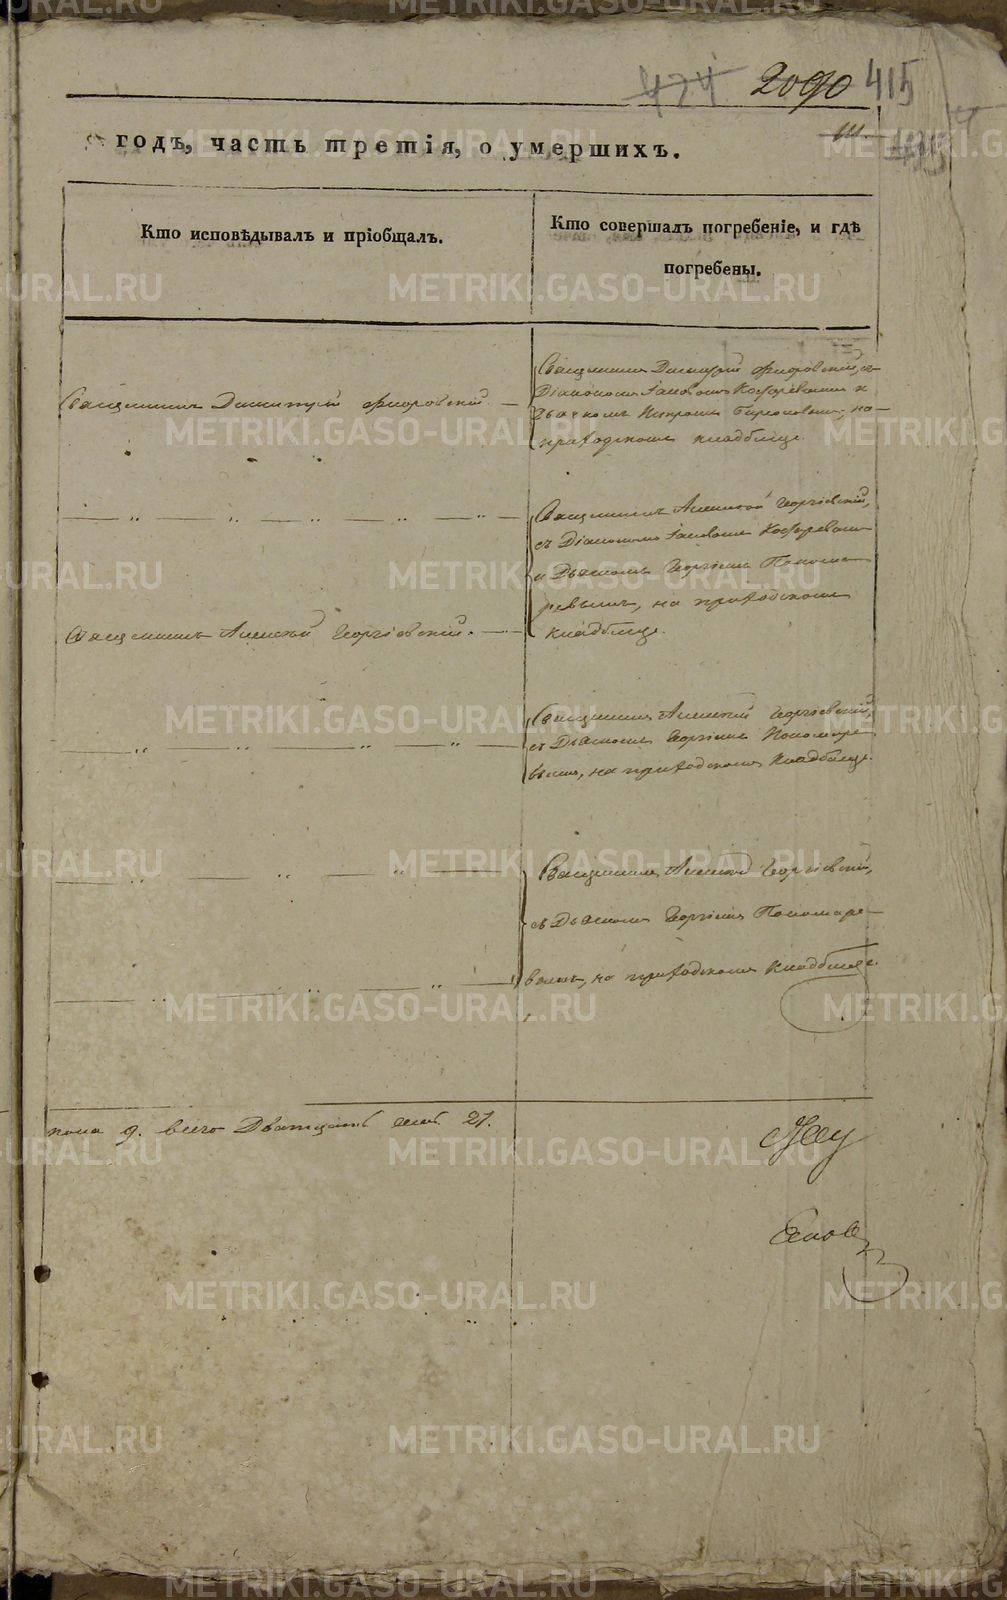 424 2090 415
годъ, часть третія, о умершихъ.
Кто исповѣдывалъ и пріобщалъ.
Кто совершалъ погребеніе, и гдѣ
погребены.
Священникъ Димитрій Флоровскій
Священникъ Димитрій Флоровскій, съ
Діакономъ Іаковомъ
Дьячкомъ Петромъ на
приходскомъ кладбище.
Священникъ Алексій Георгіевскій,
съ Діакономъ Іаковомъ
и Дьячкомъ Георгіемъ Понома
ревымъ, на приходскомъ
кладбище.
Священникъ Алексій Георгіевскій.
Священникъ Алексій Георгіевскій,
съ Дьячкомъ Георгіемъ Пономаре
вымъ, на приходскомъ кладбище.
Священникъ Алексій Георгіевскій,
съ Дьячкомъ Георгіемъ Пономаре
вымъ, на приходскомъ кладбище.
пола 9. всего Двадцать 21.
METRIKI.GASO-URAL.RU